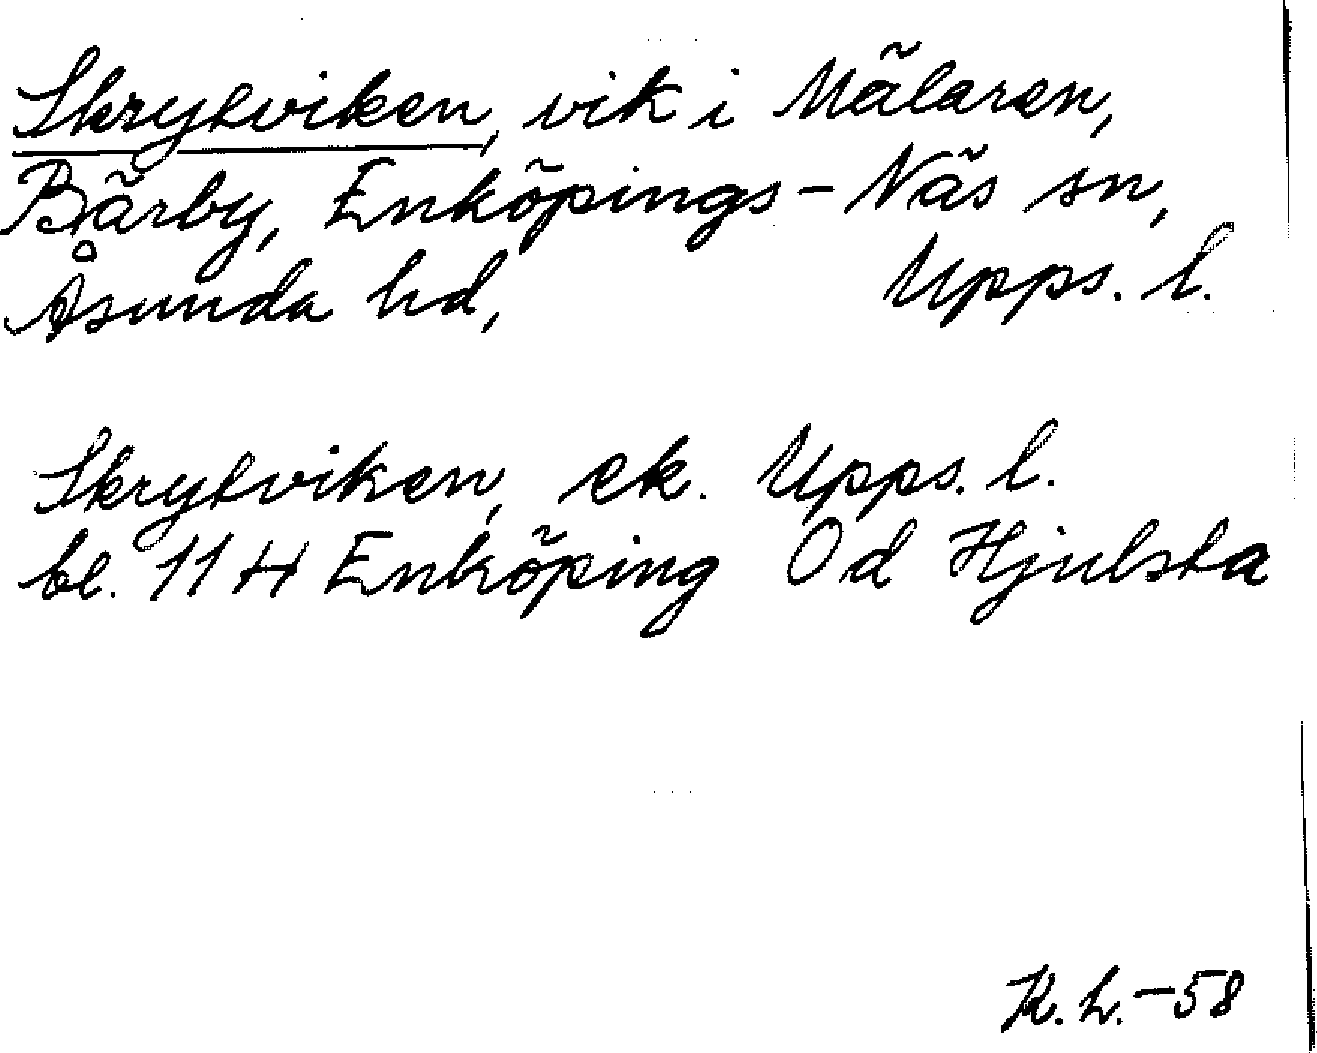 Skrytviken, vik i Mälaren,
Bärby, Enköpings-Näs sn,
Åsunda hd, Upps. l.
Skrytviken, ek. Upps. l.
bl. 11 H Enköping Od Hjulsta
K. L. -58